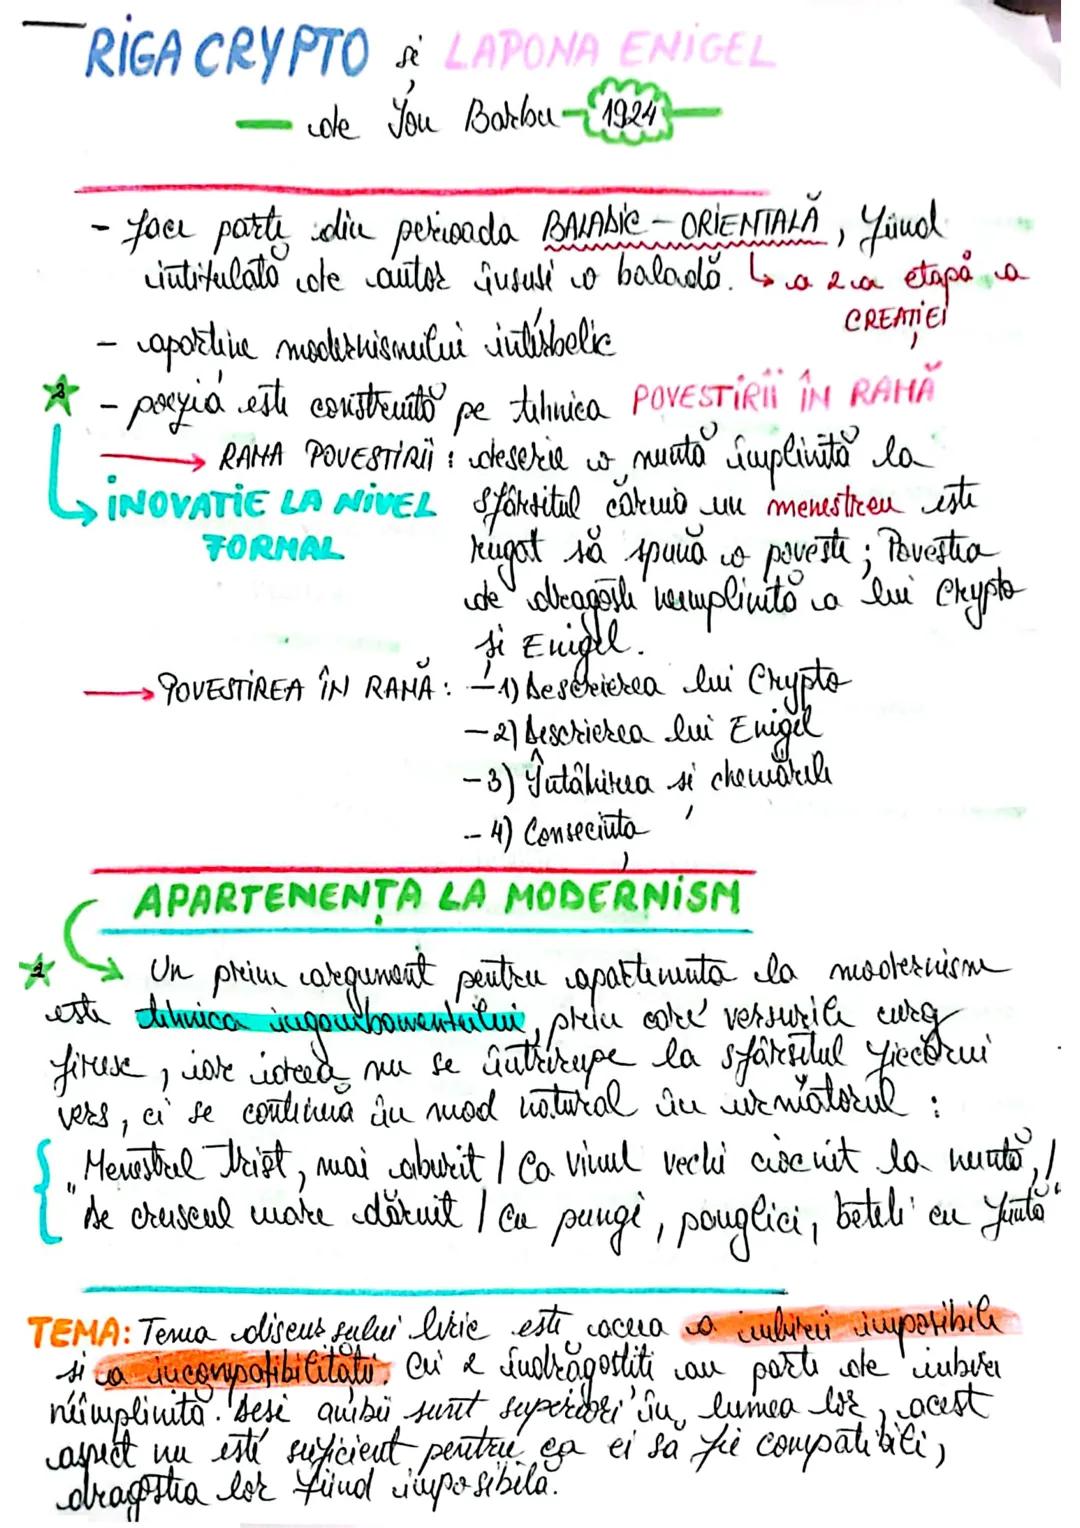 RIGA CRYPTO și LAPONA ENIGEL
— de Ion Barbu — 1924 —
- face parte din perioada BALADIC - ORIENTALĂ, fiind
intitulată de autor însuși o baladă. ↳ a 2 a etapă a
CREAȚIEI
- aparține modernismului interbelic
2 - poezia este construită pe tehnica POVESTIRII ÎN RAMĂ
→ RAMA POVESTIRII : descrie o nuntă împlinită la
↳ INOVAȚIE LA NIVEL sfârșitul căruia un menestreu este
FORMAL rugat să spună o poveste ; Povestea
de dragoste neîmplinită a lui Crypto
și Enigel.
→ POVESTIREA ÎN RAMĂ : - 1) Descrierea lui Crypto
- 2) Descrierea lui Enigel
- 3) Întâlnirea și chemările
- 4) Consecința
APARTENENȚA LA MODERNISM
1 Un prim argument pentru apartenența la modernism
este tehnica ingambamentului, prin care versurile curg
firesc, iar ideea nu se întrerupe la sfârșitul fiecărui
vers, ci se continuă în mod natural în următorul :
„Menestrel trist, mai aburit / Ca vinul vechi ciocnit la nuntă, /
De cuscrul mare dăruit / Cu pungi, panglici, beteli cu funtă"
TEMA: Tema discursului liric este aceea a iubirii imposibile
și a incompatibilității. Cei 2 îndrăgostiți au parte de iubirea
neîmplinită. Deși ambii sunt superiori în lumea lor, acest
aspect nu este suficient pentru ca ei să fie compatibili,
dragostea lor fiind imposibilă.